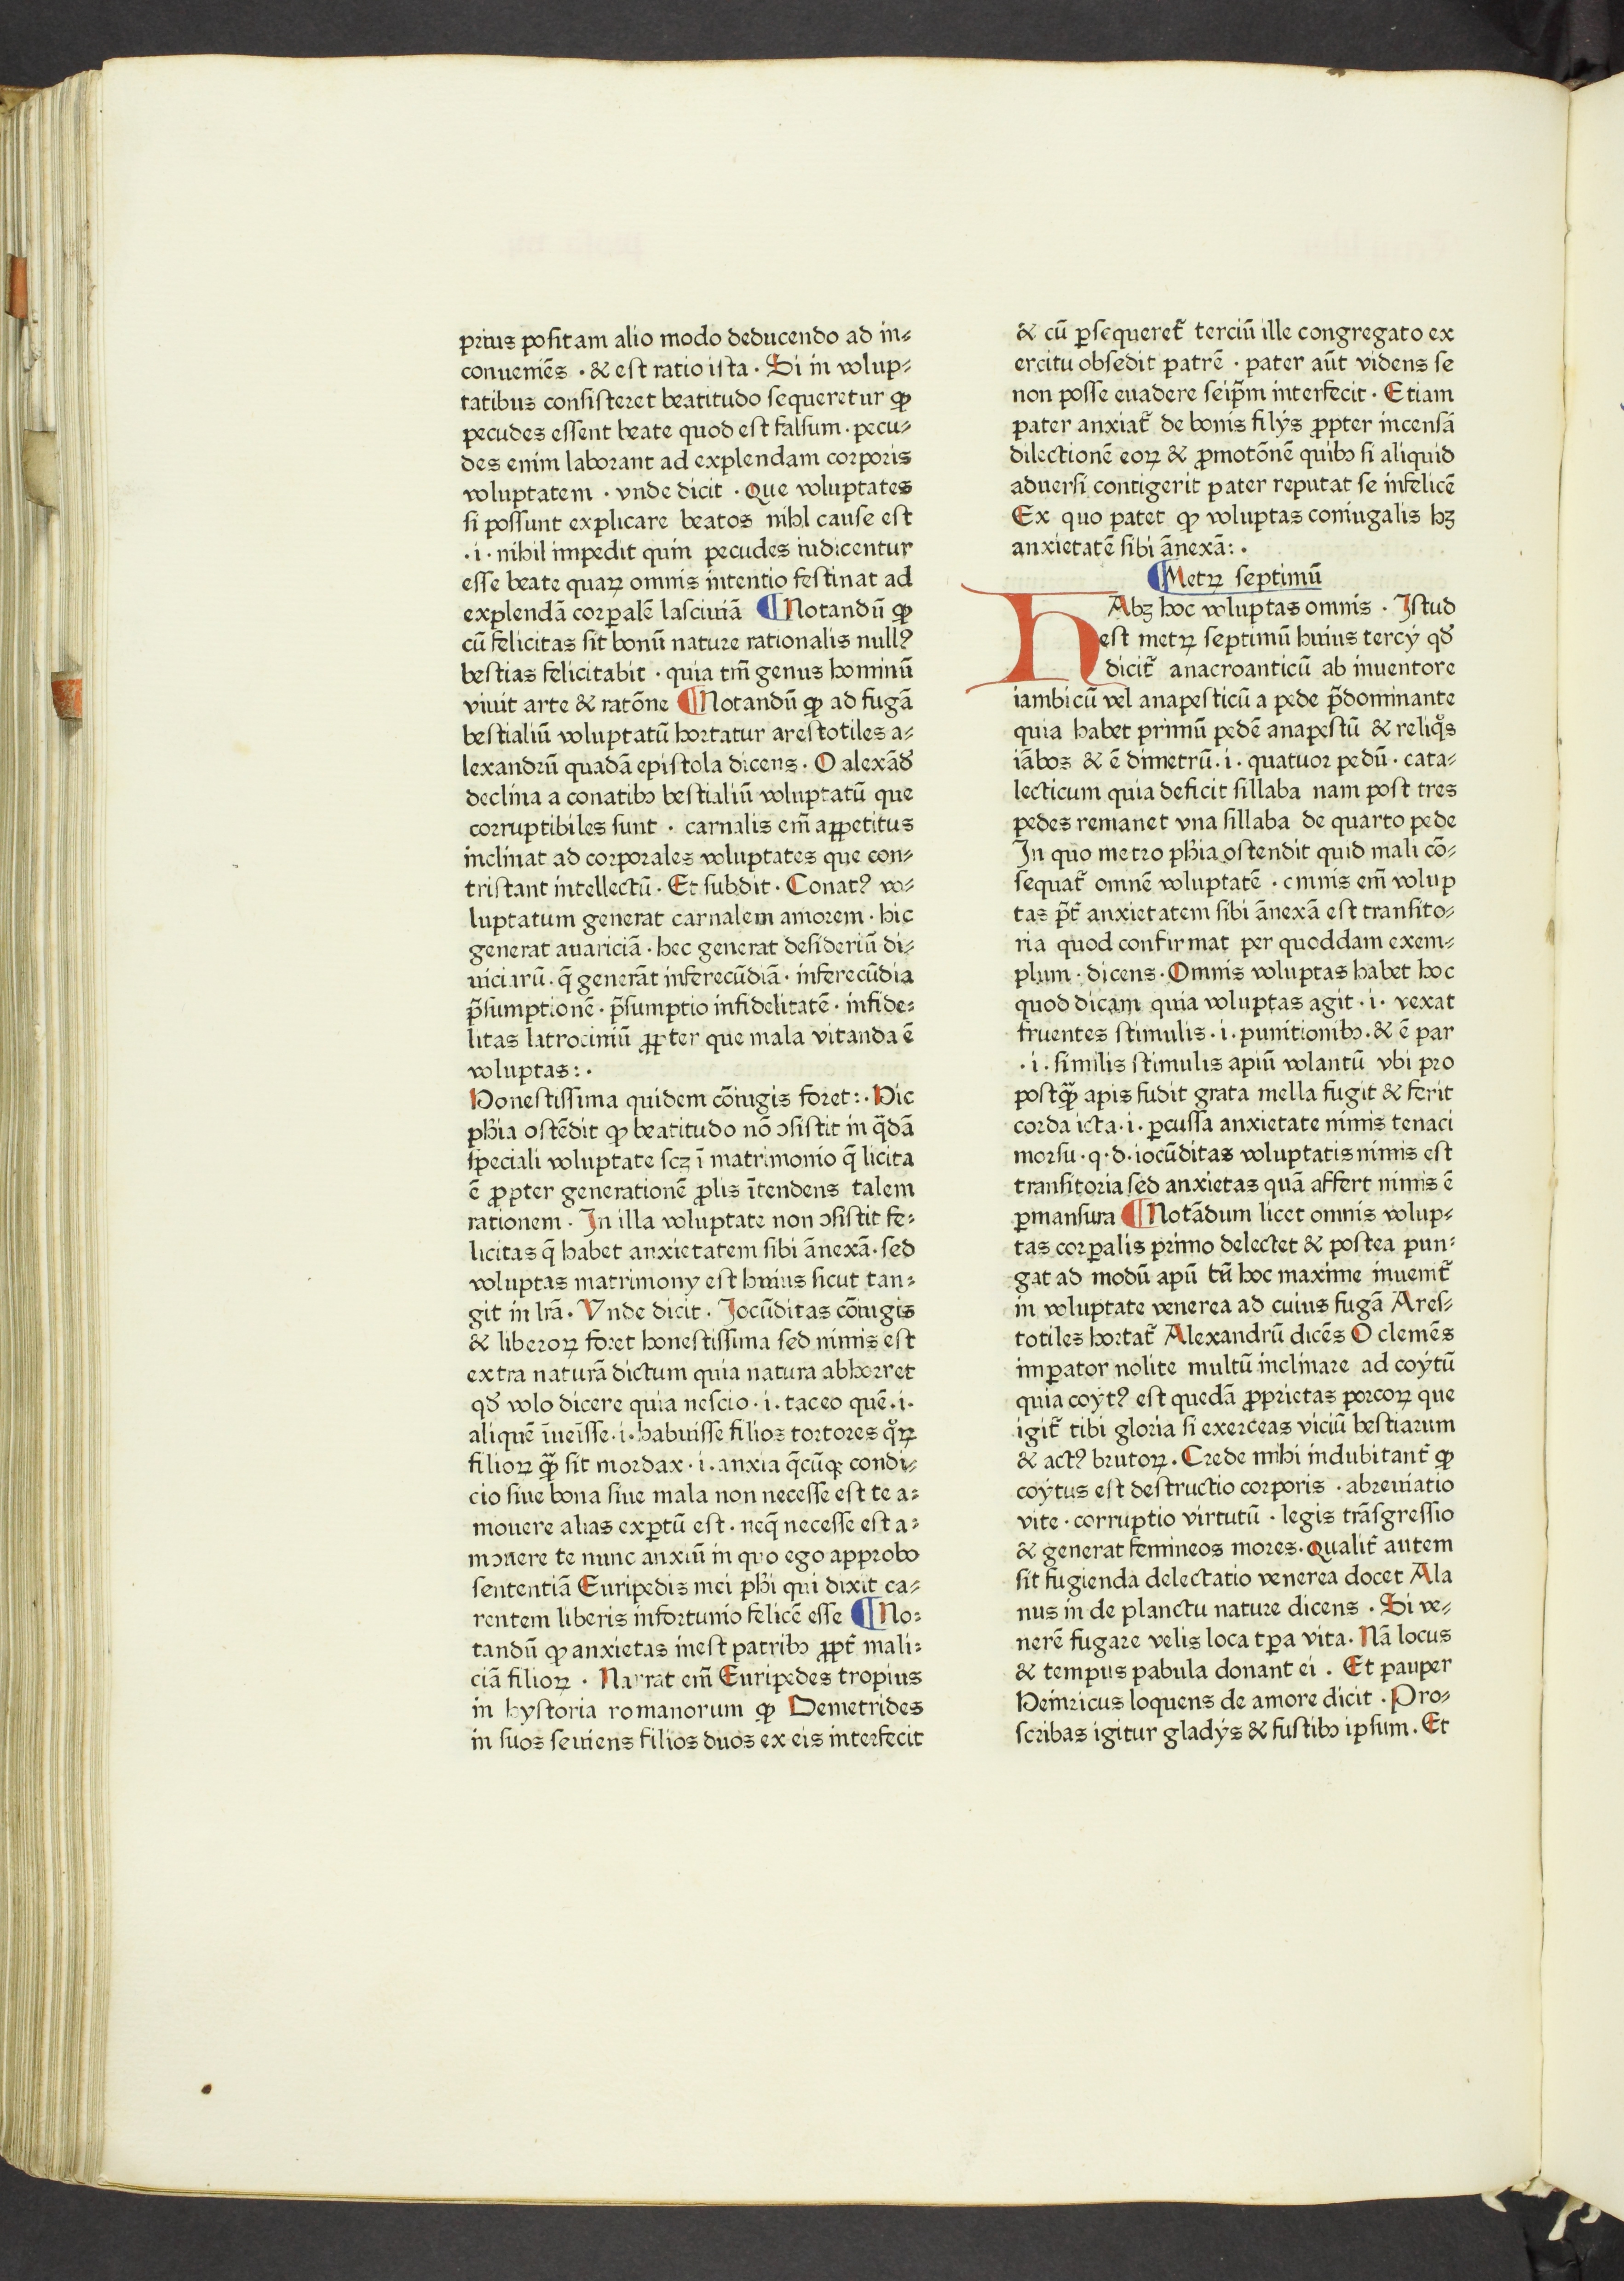 prius positam alio modo deducendo ad in⸗
conueniẽs · & est ratio ista · Si in volup⸗
tatibus consisteret beatitudo sequeretur ꝙ
pecudes essent beate quod est falsum · pecu⸗
des enim laborant ad explendam corporis
voluptatem · vnde dicit · Que voluptates
si possunt explicare beatos nihl cause est
·i· nihil impedit quin pecudes iudicentur
esse beate quaꝝ omnis intentio festinat ad
explendã corꝑalẽ lasciuiã ¶ Notandũ ꝙ
cũ felicitas sit bonũ nature rationalis nullꝰ
bestias felicitabit · quia tm̃ genus hominũ
viuit arte & ratõne ¶ Notandũ ꝙ ad fugã
bestialiũ voluptatũ hortatur arestotiles a⸗
lexandrũ quadã epistola dicens · O alexãđ
declina a conatibꝰ bestialiũ voluptatũ que
corruptibiles sunt · carnalis em̃ appetitus
inclinat ad corporales voluptates que con⸗
tristant intellectũ · Et subdit · Conatꝰ vo⸗
luptatum generat carnalem amorem · hic
generat auariciã · hec generat desideriũ di⸗
uiciarũ · q̃ generãt inferecũdiã · inferecũdia
p̃sumptionẽ · p̃sumptio infidelitatẽ · infide⸗
litas latrociniũ ꝓpter que mala vitanda ẽ
voluptas : ·
Honestissima quidem cõiugis foret : · Hic
pħia ostẽdit ꝙ beatitudo nõ ꝯsistit in q̃dã
speciali voluptate scꝫ ĩ matrimonio q̃ licita
ẽ ꝓpter generationẽ ꝓlis ĩtendens talem
rationem · In illa voluptate non ꝯsistit fe⸗
licitas q̃ habet anxietatem sibi ãnexã · sed
voluptas matrimony est huius sicut tan⸗
git in lr̃a · Vnde dicit · Jocũditas cõiugis
& liberoꝝ foret honestissima sed nimis est
extra naturã dictum quia natura abhorret
qđ volo dicere quia nescio · i · taceo quẽ · i ·
aliquẽ ĩueĩsse · i · habuisse filios tortores qͦꝝ
filioꝝ ꝙ̃ sit mordax · i · anxia q̃cũqꝫ condi⸗
cio siue bona siue mala non necesse est te a⸗
mouere alias exꝑtũ est · neq̃ necesse est a⸗
mouere te nunc anxiũ in quo ego approbo
sententiã Euripedis mei pħi qui dixit ca⸗
rentem liberis infortunio felicẽ esse ¶ No⸗
tandũ ꝙ anxietas inest patribꝰ ꝓpt̃ mali⸗
ciã filioꝝ · Narrat em̃ Euripedes tropius
in hystoria romanorum ꝙ Demetrides
in suos seuiens filios duos ex eis interfecit
& cũ ꝑsequeret̃ terciũ ille congregato ex
ercitu obsedit patrẽ · pater aũt videns se
non posse euadere seip̃m interfecit · Etiam
pater anxiat̃ de bonis filÿs ꝓpter incensã
dilectionẽ eoꝝ & ꝓmotõnẽ quibꝰ si aliquid
aduersi contigerit pater reputat se infelicẽ
Ex quo patet ꝙ voluptas coniugalis hꝫ
anxietatẽ sibi ãnexã : ·
¶ Metꝝ septimũ
HAbꝫ hoc voluptas omnis · Jstud
est metꝝ septimũ huius tercÿ qđ
dicit̃ anacroanticũ ab inuentore
iambicũ vel anapesticũ a pede p̃dominante
quia habet primũ pedẽ anapestũ & reliqͦs
iãbos & ẽ dimetrũ · i · quatuor pedũ · cata⸗
lecticum quia deficit sillaba nam post tres
pedes remanet vna sillaba de quarto pede
In quo metro pħia ostendit quid mali cõ⸗
sequat̃ omnẽ voluptatẽ · omnis em̃ volup
tas p̃t̃ anxietatem sibi ãnexã est transito⸗
ria quod confirmat per quoddam exem⸗
plum · dicens · Omnis voluptas habet hoc
quod dicam quia voluptas agit · i · vexat
fruentes stimulis · i · punitionibꝰ · & ẽ par
· i · similis stimulis apiũ volantũ vbi pro
postꝙ̃ apis fudit grata mella fugit & ferit
corda icta · i · ꝑcussa anxietate nimis tenaci
morsu · q · d · iocũditas voluptatis nimis est
transitoria sed anxietas quã affert nimis ẽ
ꝑmansura ¶ Notãdum licet omnis volup⸗
tas corꝑalis primo delectet & postea pun⸗
gat ad modũ apũ tñ hoc maxime inuenit̃
in voluptate venerea ad cuius fugã Ares⸗
totiles hortat̃ Alexandrũ dicẽs O clemẽs
imꝑator nolite multũ inclinare ad coÿtũ
quia coÿtꝰ est quedã ꝓprietas porcoꝝ que
igit̃ tibi gloria si exerceas viciũ bestiarum
& actꝰ brutoꝝ · Crede mihi indubitant̃ ꝙ
coÿtus est destructio corporis · abreuiatio
vite · corruptio virtutũ · legis trãsgressio
& generat femineos mores · Qualit̃ autem
sit fugienda delectatio venerea docet Ala
nus in de planctu nature dicens · Si ve⸗
nerẽ fugare velis loca tꝑa vita · Nã locus
& tempus pabula donant ei · Et pauper
Heinricus loquens de amore dicit · Pro⸗
scribas igitur gladÿs & fustibꝰ ipsum · Et